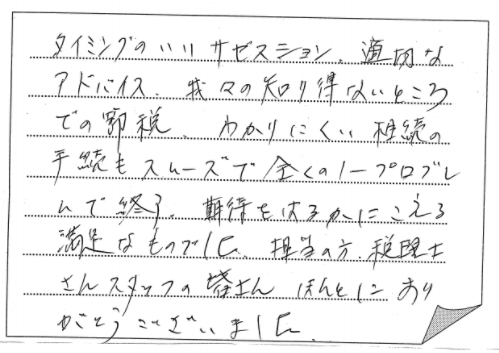 タイミングのいいサゼスション、適切な
アドバイス、我々の知り得ないところ
での節税、わかりにくい相続の
手続もスムーズで全くのノープロブレ
ムで終了、期待をはるかにこえる
満足なものでした、担当の方、税理士
さんスタッフの皆さん ほんとに あり
がとうございました、